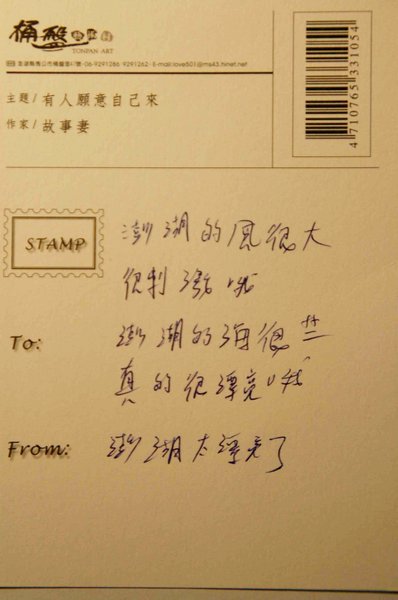 桶盤
TONPAN ART
澎湖縣馬公市桶盤里61號·06-9291286 9291262·E-mail:love501@ms43.hinet.net
主題/有人願意自己來
作家/故事妻
4710765331054
STAMP
澎湖的風很大
很刺激哦
To:
澎湖的海很藍
真的很漂亮哦
From:
澎湖太漂亮了